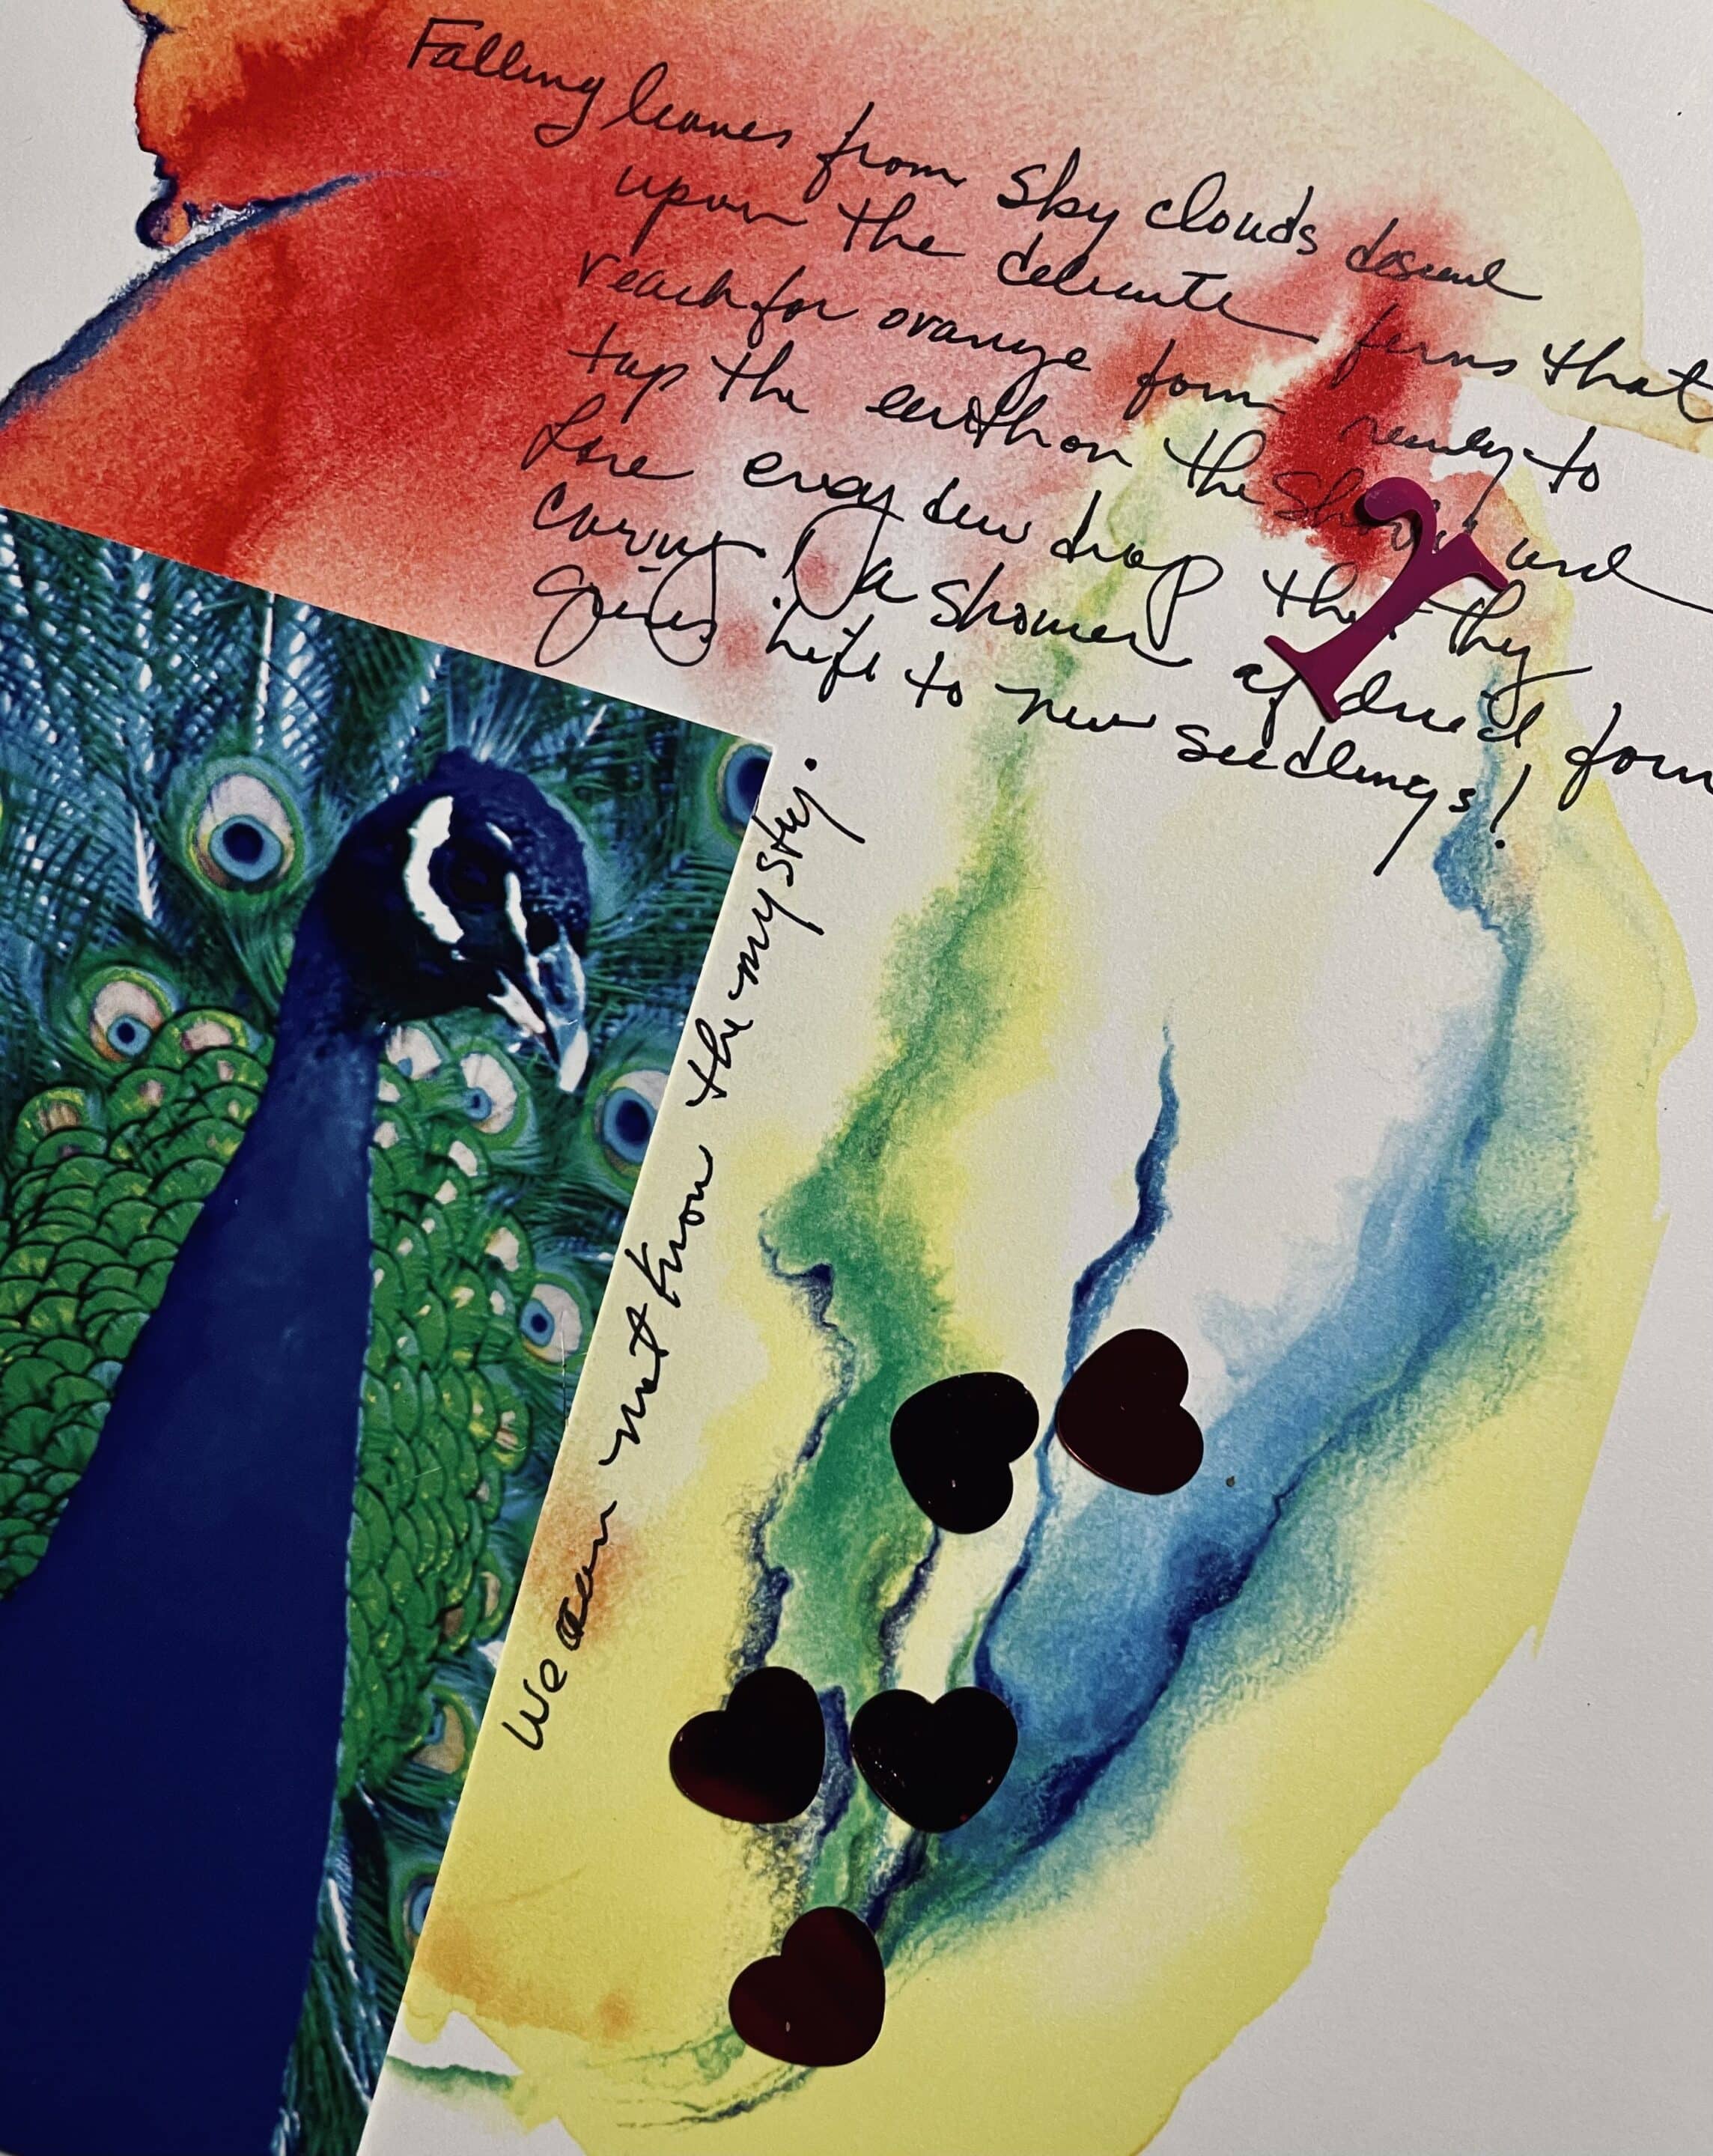 Falling leaves from sky clouds descend
upon the delicate ferns that
reach for orange form ready to
tap the earth on the and
Lose every dew drop that they
carry! A shower of dried form
gives life to new seedlings!
We can not know the mystery.
r